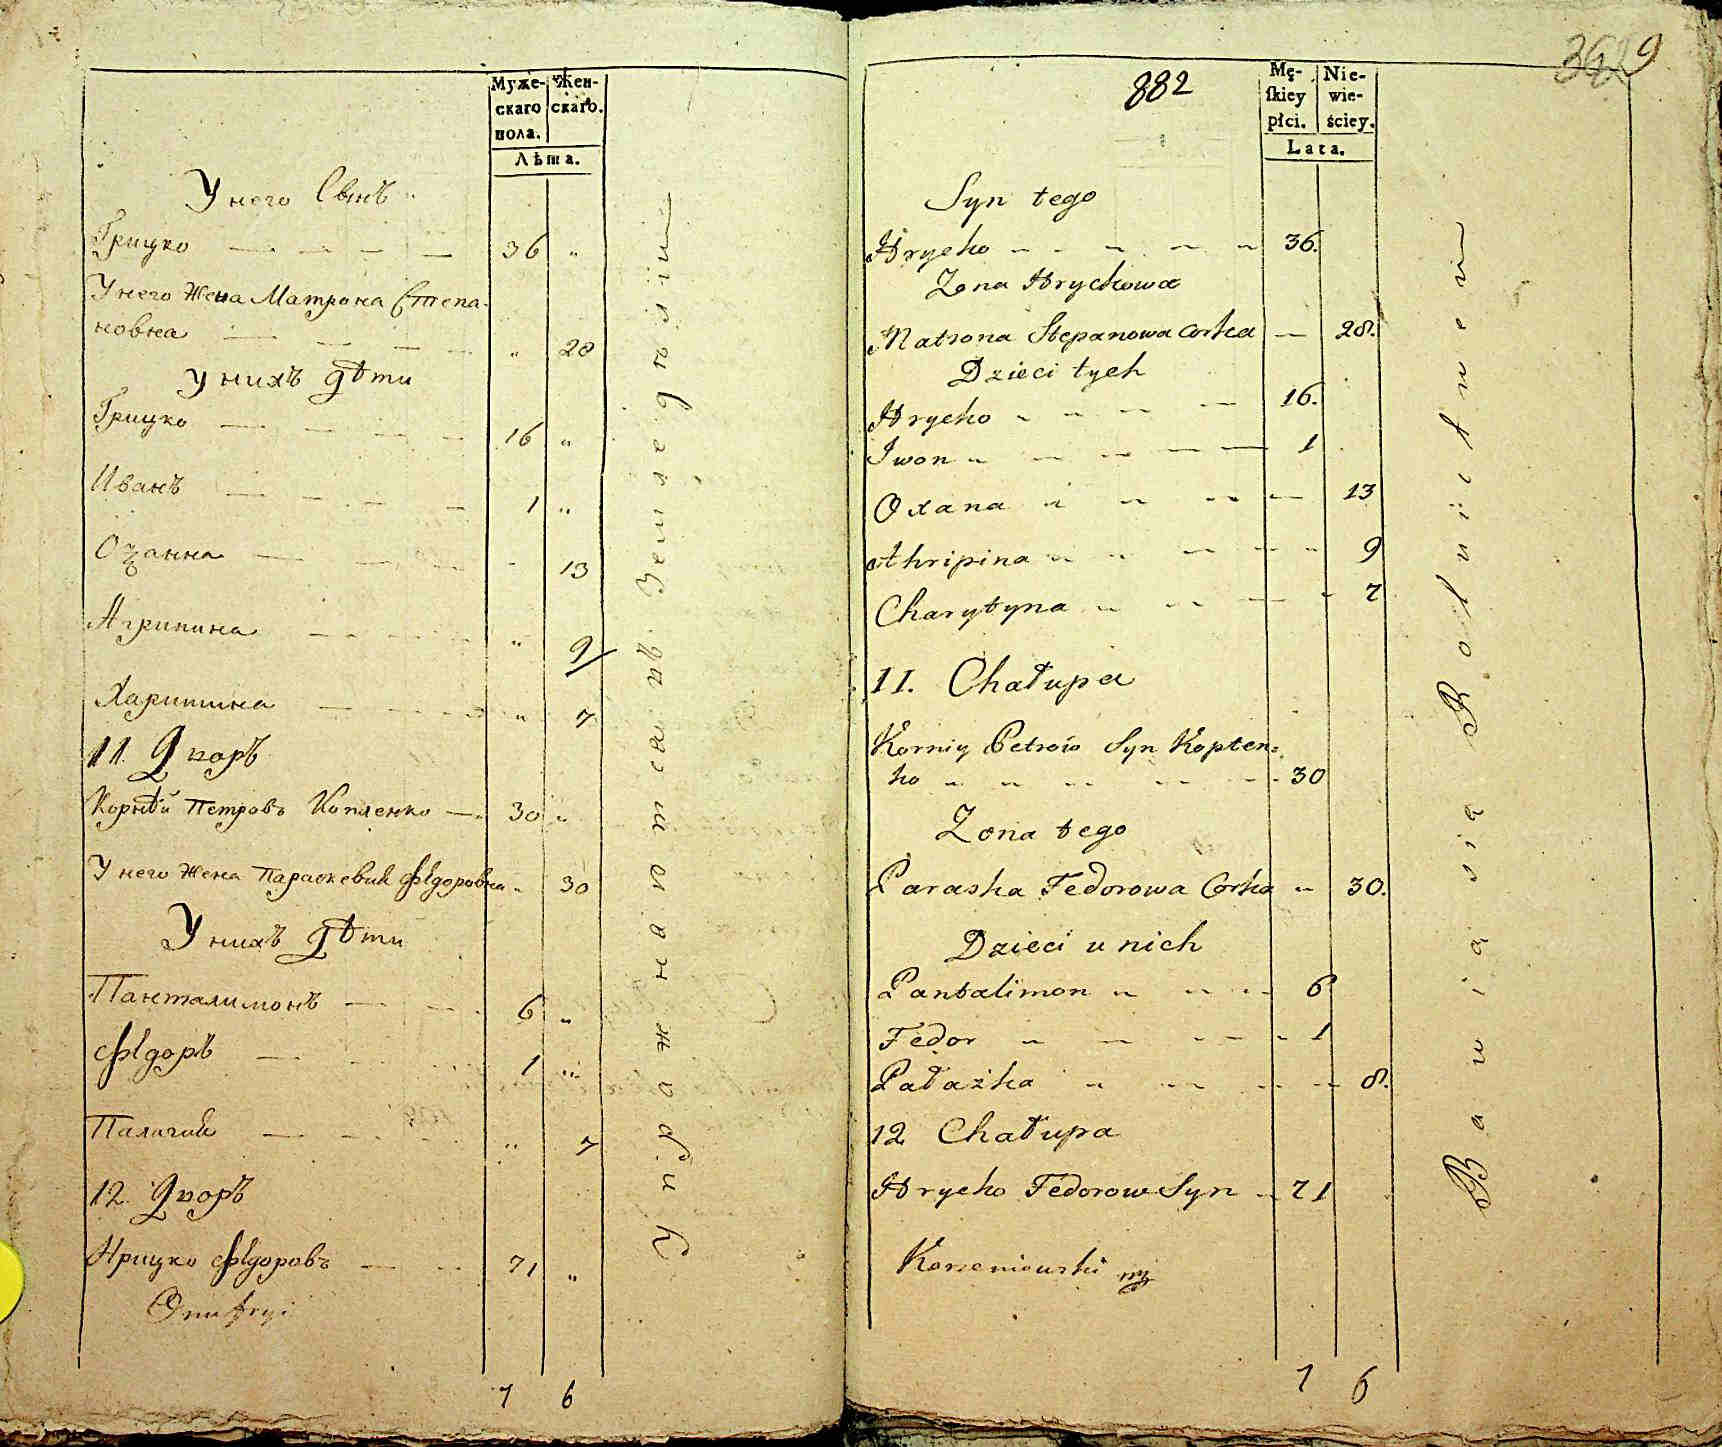 Муже-
скаго
пола.
Жен-
скаго.
Лѣта.
У него Сынъ
Грицко 36 "
У него Жена Матрона Степа-
новна " 28
У нихъ дѣти
Грицко 16 "
Иванъ 1 "
Оѯанна - 13
Агрипина " 9
Харитина " 7
11. Дворъ
Корнѣй Петровъ Коптенко 30 "
У него Жена Параскевия Фѣдоровна " 30
У нихъ Дѣти
Панталимонъ 6 "
Фѣдоръ 1 "
Палагия " 7
12. Дворъ
Грицко Фѣдоровъ 71 "
Onufryi
7 6
Упражняются въ Земледѣлии
882
3629
Mę-
skiey
płci.
Nie-
wie-
ściey.
Lata.
Syn tego
Hrycko 36.
Zona Hryckowa
Matrona Stepanowa Corka — 28.
Dzieci tych
Hrycko 16.
Iwon 1
Oxana — 13
Ahripina " 9
Charytyna - 7
11. Chałupa
Korniy Petrów Syn Kopten=
ko 30
Zona tego
Paraska Fedorowa Corka " 30.
Dzieci u nich
Pantalimon 6
Fedor 1
Pałażka 8.
12 Chałupa
Hrycko Fedorow Syn 71
Korzeniewski
7 6
Bawią się Rolnictwem